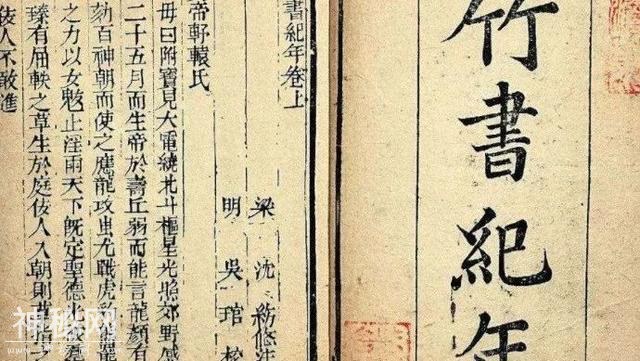 竹書紀年
書紀年卷上
梁 沈約修注
明 吳琯
帝軒轅氏
母曰附寶見大電繞北斗樞星光照郊野感
二十五月而生帝於壽丘弱而能言龍顏有
劾百神朝而使之應龍攻蚩尤戰虎
之力以女魃止淫雨天下既定聖德
臻有屈軼之草生於庭佞人入朝則草指之
佞人不敢進
神秘网